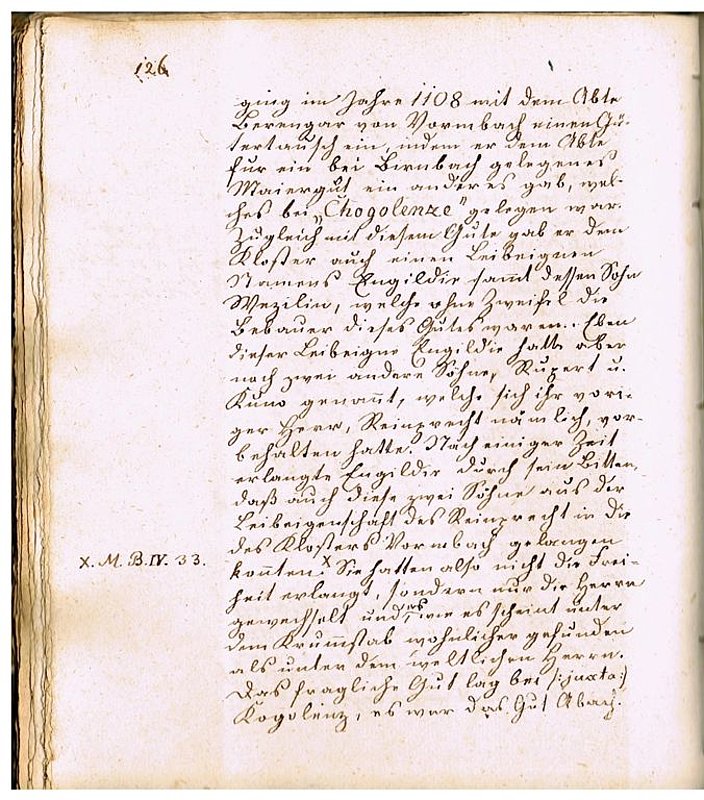 126
ging im Jahre 1108 mit dem Abte
Berengar von Vormbach einen Gü-
tertausch ein, indem er dem Abte
für ein bei Birnbach gelegenes
Maiergut ein anderes gab, wel-
ches bei „Chogolenze" gelegen war.
Zugleich mit diesem Gute gab er dem
Kloster auch einen Leibeignen
Namens Engildie sammt dessen Sohn
Wezilin, welche ohne Zweifel die
Bebauer dieses Gutes waren. Eben
dieser Leibeigne Engildie hatte aber
noch zwei andere Söhne, Rupert u.
Kuno genannt, welche sich ihr vori-
ger Herr, Reinprecht nämlich, vor-
behalten hatte. Nach einiger Zeit
erlangte Engildie durch sein Bitten,
daß auch diese zwei Söhne aus der
Leibeigenschaft des Reinprecht in die
des Klosters Vormbach gelangen
X. M. B. IV. 33.
konnten X Sie hatten also nicht die Frei-
heit erlangt, sondern nur die Herrn
gewechselt und es, wie es scheint unter
dem Krummstab wohnlicher gefunden
als unter dem weltlichen Herrn.
Das fragliche Gut lag bei /:juxta:/
Kogolenz, es war das Gut Abach.